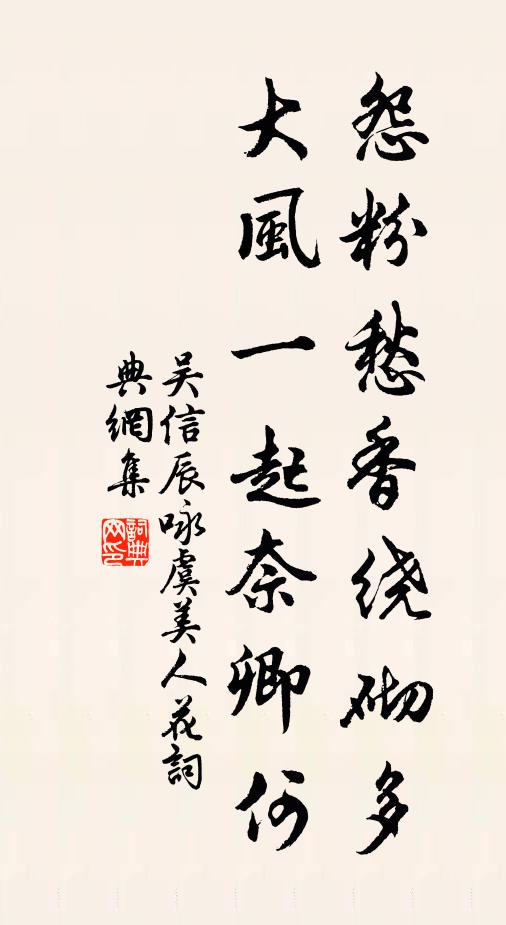 怨粉愁香绕砌多
大風一起奈卿何
吴信辰咏虞美人花詞
典網集
詞典
网印